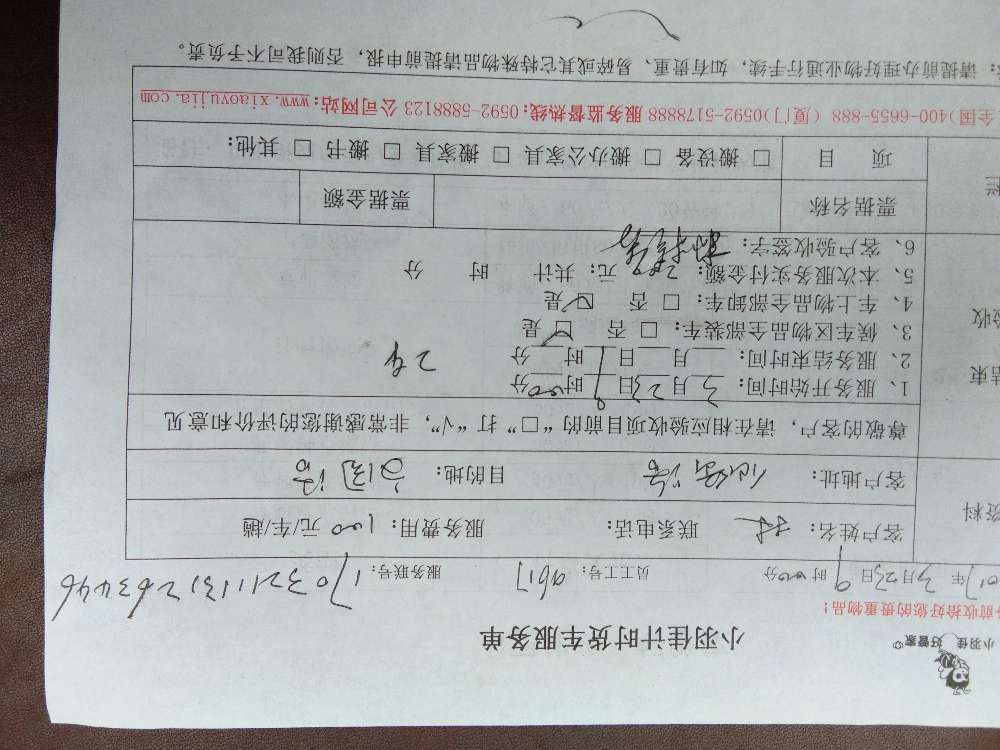 小羽佳 好管家
小羽佳计时货车服务单
前收拾好您的贵重物品!
年 3 月 23 日 9 时 00 分 员工工号: 9617 服务联号:
资料
客户姓名: 联系电话: 服务费用: 100 元/车/趟
客户地址: 目的地:
尊敬的客户,请在相应验收项目前的“□”打“√”,非常感谢您的评价和意见
结束
验收
1、服务开始时间: 3 月 23 日 9 时 00 分
2、服务结束时间: 月 日 时 分 2车
3、候车区物品全部装车:□ 否 □ 是
4、车上物品全部卸车:□ 否 □ 是
5、本次服务实付金额: 元;共计 时 分
6、客户验收签字:
票据名称 票据金额
项 目 □ 搬设备 □ 搬办公家具 □ 搬家具 □ 搬书 □ 其他:
全国)400-6655-888 (厦门)0592-5178888 服务监督热线:0592-5888123 公司网站:www.xiaoyujia.com
:请提前办理好物业通行手续,如有贵重、易碎或其它特殊物品请提前申报,否则我司不予负责。